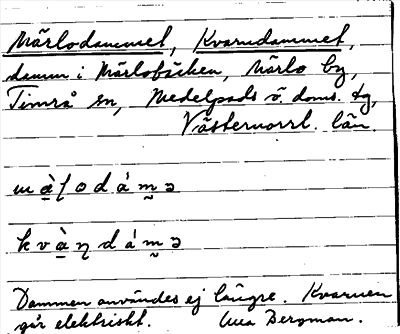 Märlodammet, Kvarndammet,
damm i Märlobäcken, Märlo by,
Timrå sn, Medelpads ö. doms. tg,
Västernorrl. län.
mà̠ɽodámə
kvà̠ɳdámə
Dammen användes ej längre. Kvarnen
går elektriskt. Bergman.